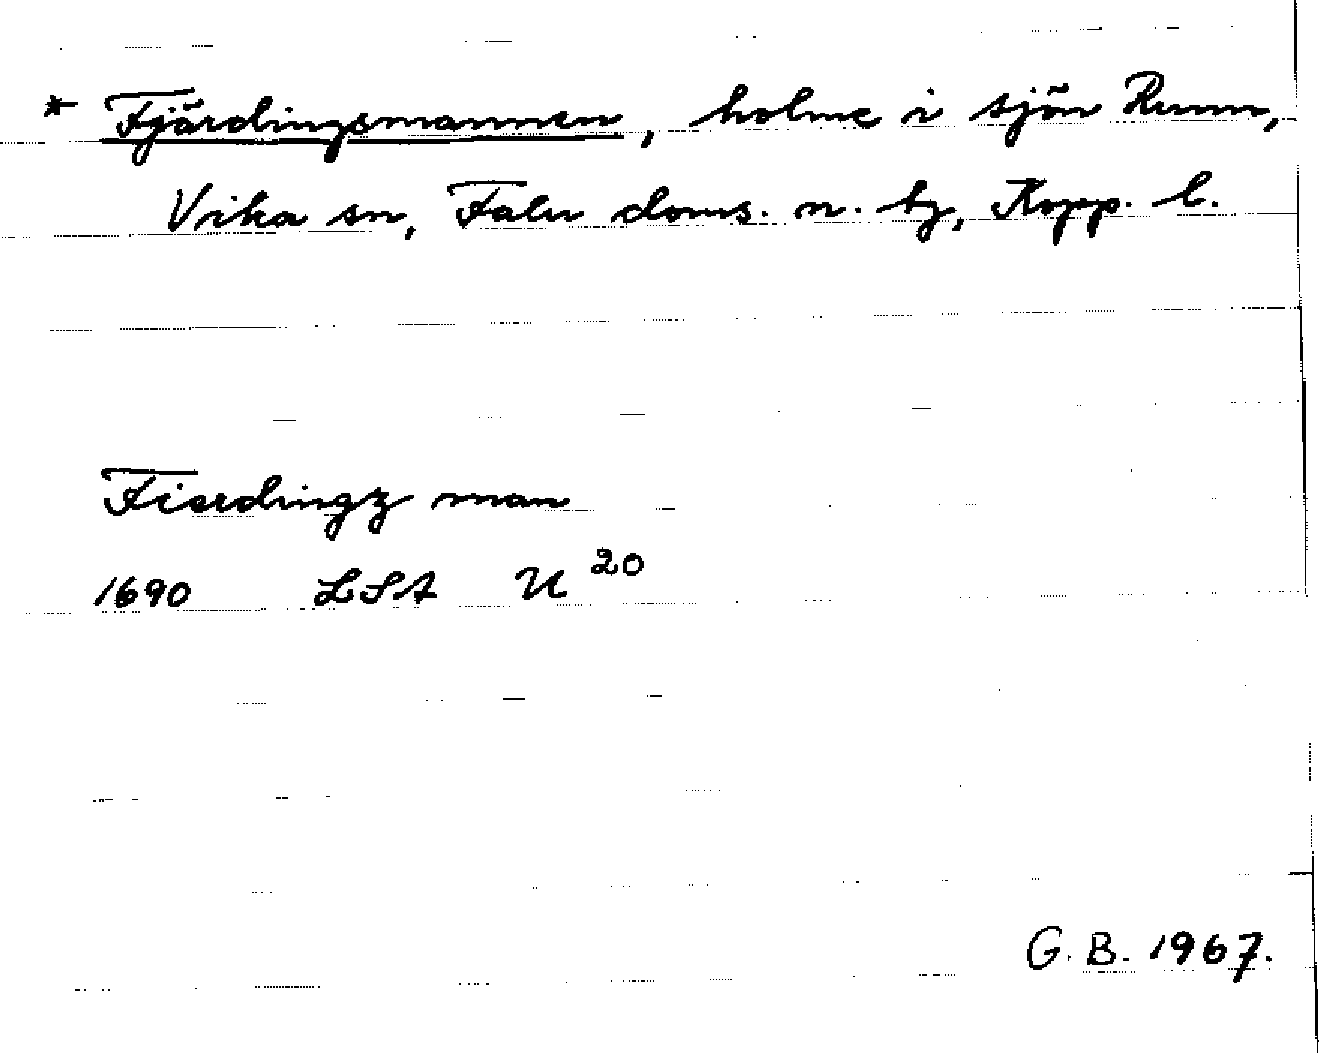 * Fjärdingsmannen, holme i sjön Runn,
Vika sn, Falu doms. n. tg, Kopp. l.
Fierdingz man
1690 LSA U 20
G. B. 1967.